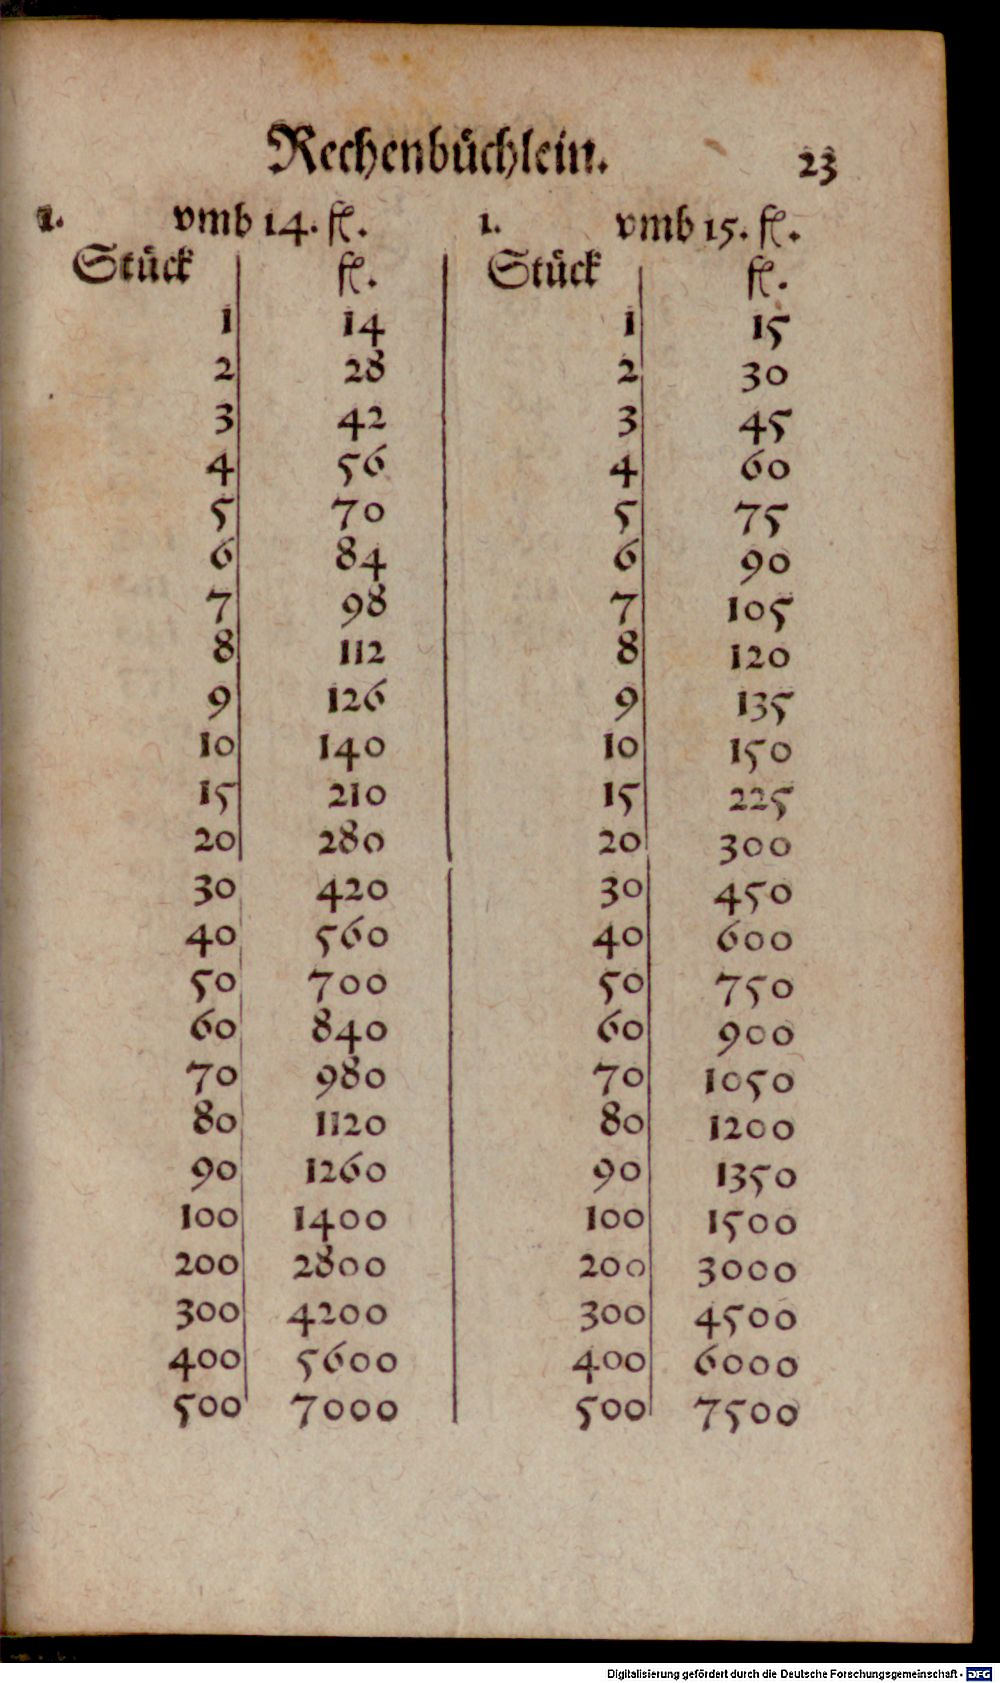 Rechenbüchlein. 23
1. vmb 14. fl. 1. vmb 15. fl.
Stück fl. Stück fl.
1 14 1 15
2 28 2 30
3 42 3 45
4 56 4 60
5 70 5 75
6 84 6 90
7 98 7 105
8 112 8 120
9 126 9 135
10 140 10 150
15 210 15 225
20 280 20 300
30 420 30 450
40 560 40 600
50 700 50 750
60 840 60 900
70 980 70 1050
80 1120 80 1200
90 1260 90 1350
100 1400 100 1500
200 2800 200 3000
300 4200 300 4500
400 5600 400 6000
500 7000 500 7500
Digitalisierung gefördert durch die Deutsche Forschungsgemeinschaft - DFG